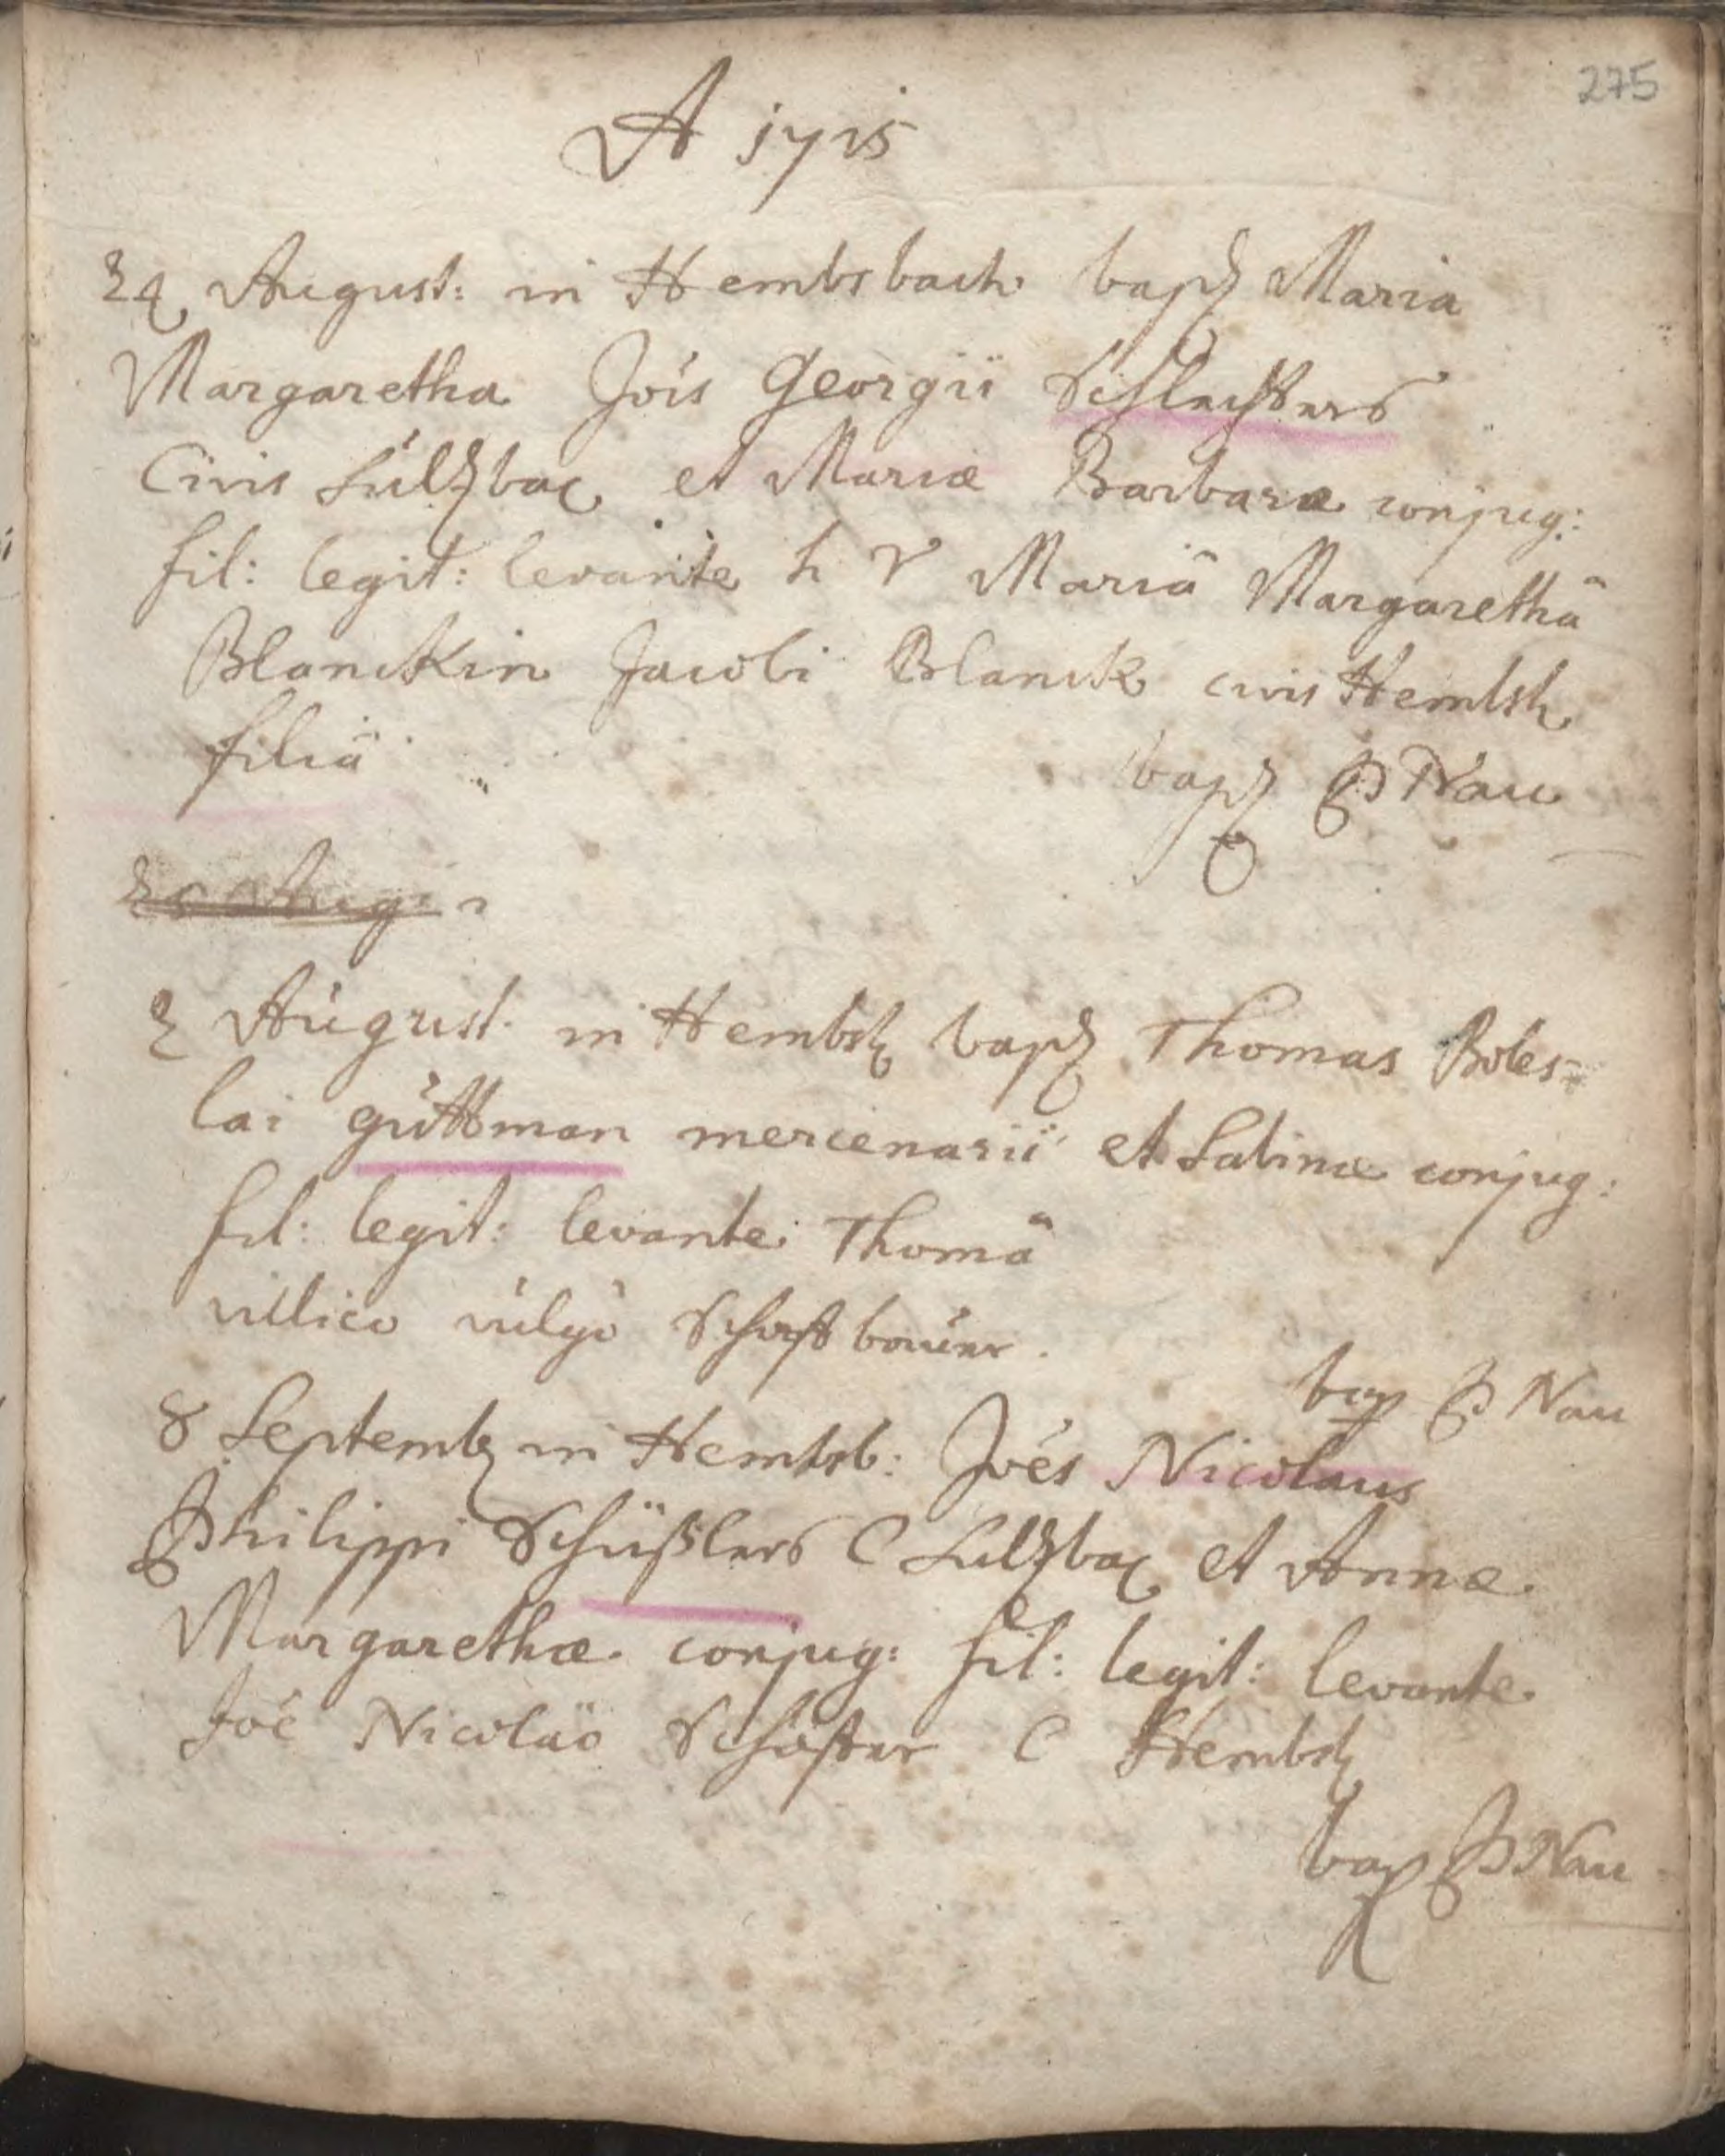 275
A 1715
24 August: in Hembsbach bapz Maria
Margaretha Jois Georgii Schlechters
Civis Sulzbac et Mariæ Barbaræ conjug:
fil: legit: levante h V Mariâ Margarethâ
Blanckin Jacobi Blanck civis Hembsb
filiâ bapz P Nau
Aug:
2 August in Hembsb bapz Thomas Boles=
lai guttman mercenarii et Sabinæ conjug:
fil: legit: levante Thomâ
villico vulgo bauer.
bap P Nau
8 Septemb in Hembsb: Joes Nicolaus
Philippi Schüßlers C Sulzbac et Annæ
Margarethæ conjug: fil: legit: levante
Joe Nicolao C Hembsb
bap P Nau